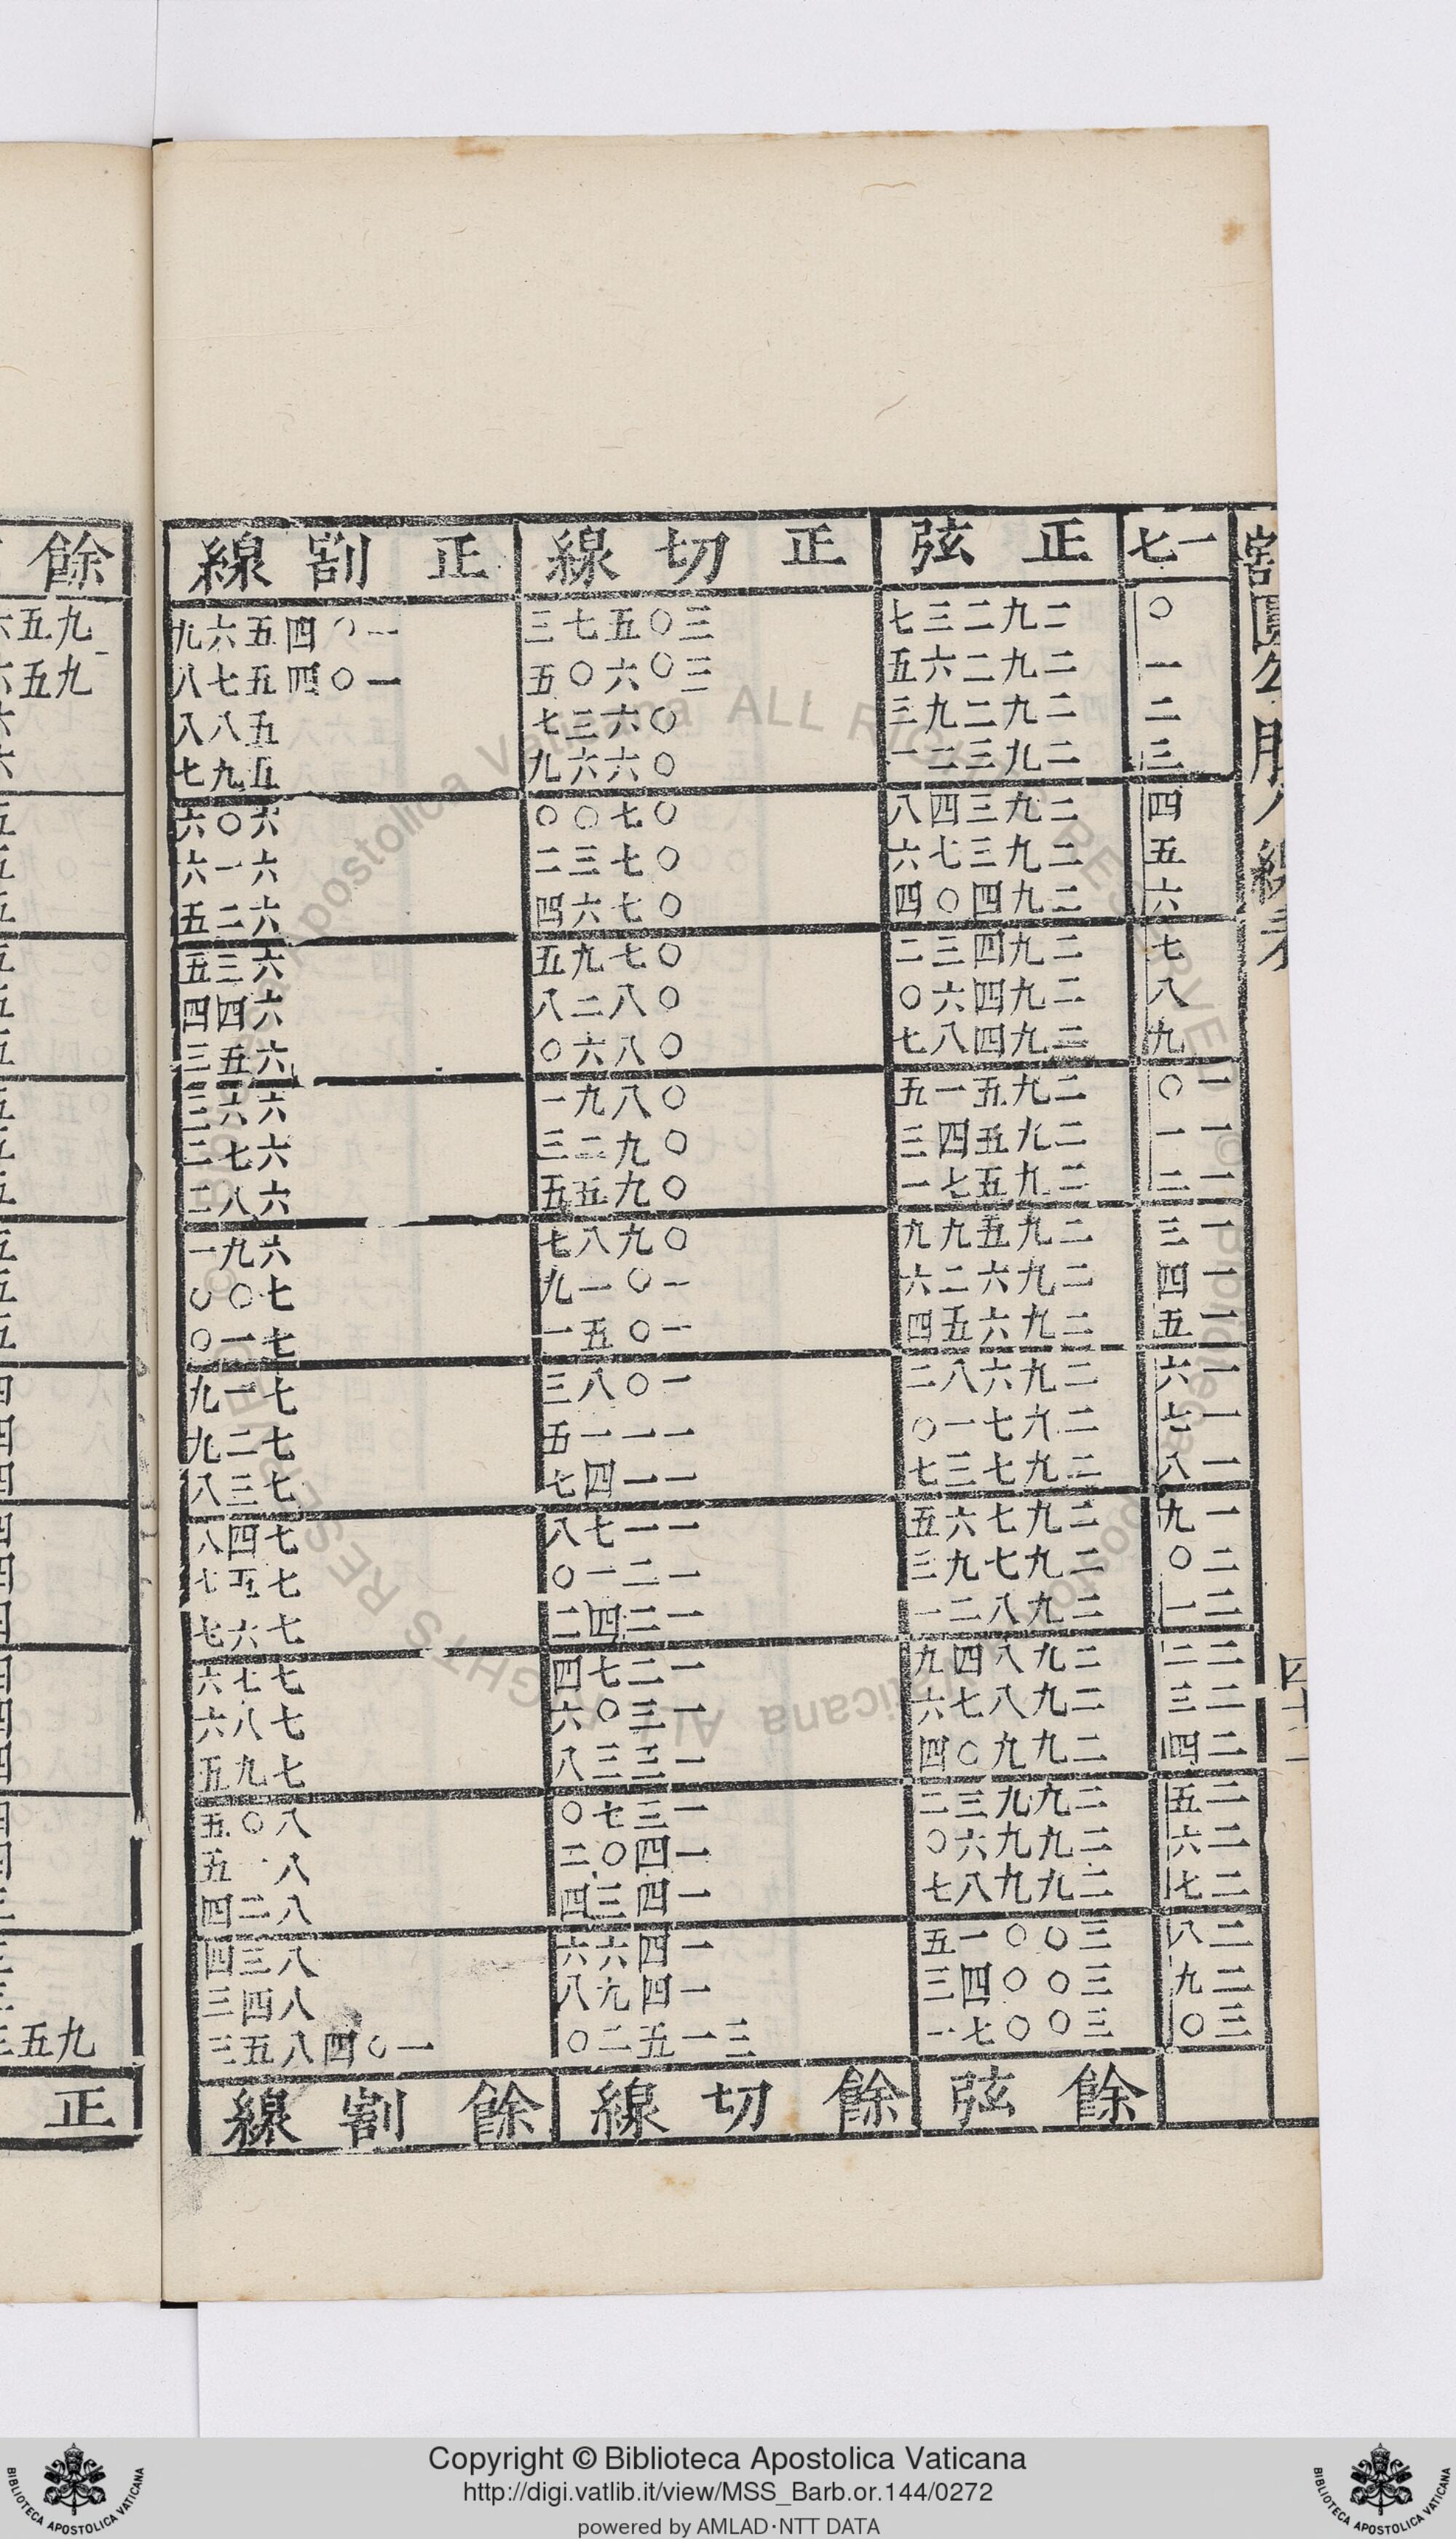 割圓勾股八線表
四十二
一七 正弦 正切線 正割線
○ 二九二三七 三○五七三 一○四五六九
一 二九二六五 三○六○五 一○四五七八
二 二九二九三 ○六三七 五八八
三 二九三二一 ○六六九 五九七
四 二九三四八 ○七○○ 六○六
五 二九三七六 ○七三二 六一六
六 二九四○四 ○七六四 六二五
七 二九四三二 ○七九五 六三五
八 二九四六○ ○八二八 六四四
九 二九四八七 ○八六○ 六五三
一○ 二九五一五 ○八九一 六六三
一一 二九五四三 ○九二三 六七二
一二 二九五七一 ○九五五 六八二
一三 二九五九九 ○九八七 六九一
一四 二九六二六 一○一九 七○○
一五 二九六五四 一○五一 七一○
一六 二九六八二 一○八三 七一九
一七 二九七一○ 一一一五 七二九
一八 二九七三七 一一四七 七三八
一九 二九七六五 一一七八 七四八
二○ 二九七九三 一二一○ 七五七
二一 二九八二一 一二四二 七六七
二二 二九八四九 一二七四 七七六
二三 二九八七六 一三○六 七八六
二四 二九九○四 一三三八 七九五
二五 二九九三二 一三七○ 八○五
二六 二九九六○ 一四○二 八一五
二七 二九九八七 一四三四 八二四
二八 三○○一五 一四六六 八三四
二九 三○○四三 一四九八 八四三
三○ 三○○七一 三一五二○ 一○四八五三
餘弦 餘切線 餘割線
餘
九五六
九五六
九五三
正
Copyright © Biblioteca Apostolica Vaticana
http://digi.vatlib.it/view/MSS_Barb.or.144/0272
powered by AMLAD·NTT DATA